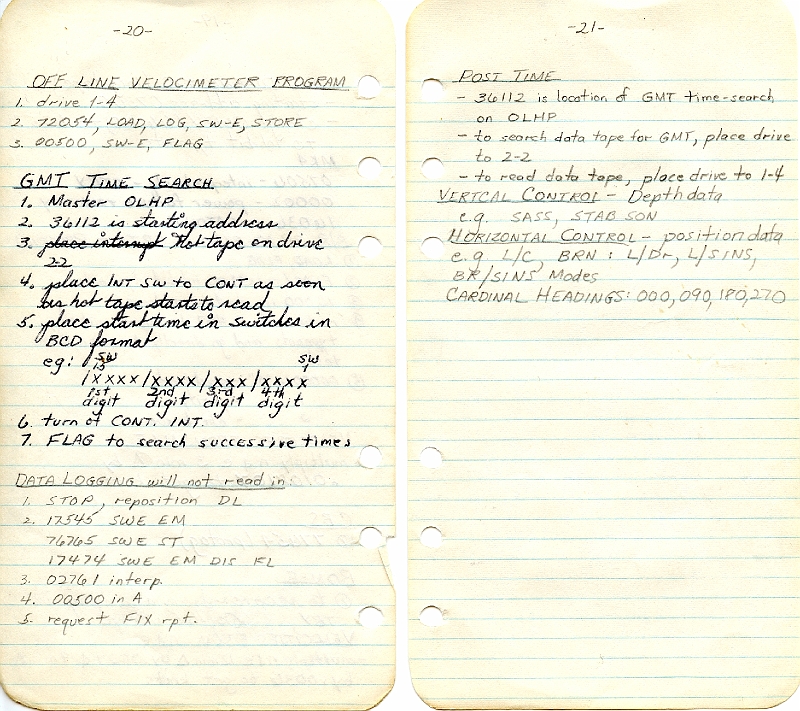 -20-
OFF LINE VELOCIMETER PROGRAM
1. drive 1-4
2. 72054, LOAD, LOG, SW-E, STORE
3. 00500, SW-E, FLAG
GMT TIME SEARCH
1. Master OLHP
2. 36112 is starting address
3. place interrupt Hot tape on drive
2-2
4. place INT SW to CONT as soon
as hot tape starts to read
5. place start time in switches in
BCD format
eg: SW SW
15 1
/XXXX/XXXX/XXX/XXXX
1st 2nd 3rd 4th
digit digit digit digit
6. turn of CONT. INT.
7. FLAG to search successive times
DATA LOGGING will not read in:
1. STOP, reposition DL
2. 17545 SWE EM
76765 SWE ST
17474 SWE EM DIS FL
3. 02761 interp.
4. 00500 in A
5. request FIX rpt.
-21-
POST TIME
- 36112 is location of GMT time-search
on OLHP
- to search data tape for GMT, place drive
to 2-2
- to read data tape, place drive to 1-4
VERTCAL CONTROL - Depth data
e.g. SASS, STAB SON
HORIZONTAL CONTROL - position data
e.g L/C, BRN : L/Dr, L/SINS,
BR/SINS Modes
CARDINAL HEADINGS: 000,090,180,270